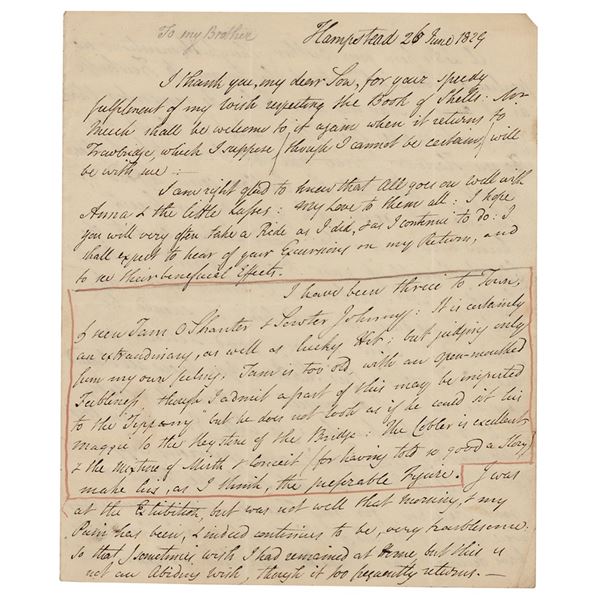 To my Brother
Hampstead 26 June 1829
I thank you, my dear Son, for your speedy
fulfilment of my wish respecting the Book of Shells: Mr
Meech shall be welcome to it again when it returns to
Trowbridge, which I suppose (though I cannot be certain) will
be with me :—
I am right glad to know that All goes on well with
Anna & the little Lasses: My Love to them all: I hope
you will very often take a Ride as I did, & as I continue to do: I
shall expect to hear of your Excursions on my Return, and
to see their beneficial Effects.
I have been thrice to Town,
& seen Tam O Shanter & Souter Johnny: It is certainly
an extraordinary, as well as lucky Hit; but judging only
from my own feeling, Tam is too old, with an open-mouthed
Feebleness, though I admit a part of this may be imputed
to the "Tippany" but he does not look as if he could sit his
Maggie to the Keystone of the Bridge: The Cobler is excellent
& the mixture of Mirth & Conceit (for having told so good a Story)
make his, as I think, the preferable Figure. I was
at the Exhibition, but was not well that Morning, & my
Pain has been, & indeed continues to be, very troublesome
so that I sometimes wish I had remained at Home, but this is
not an Abiding wish, though it too frequently returns.—